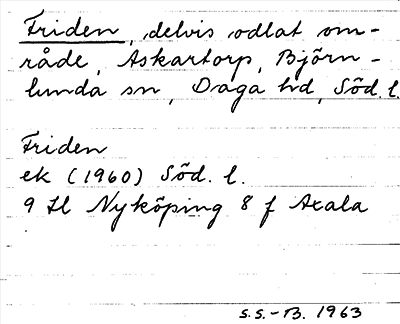 Friden, delvis odlat om-
råde, Askartorp, Björn-
lunda sn, Daga hd, Söd. l.
Friden
ek (1960) Söd. l.
9 H Nyköping 8 f Axala
S.S.-B. 1963